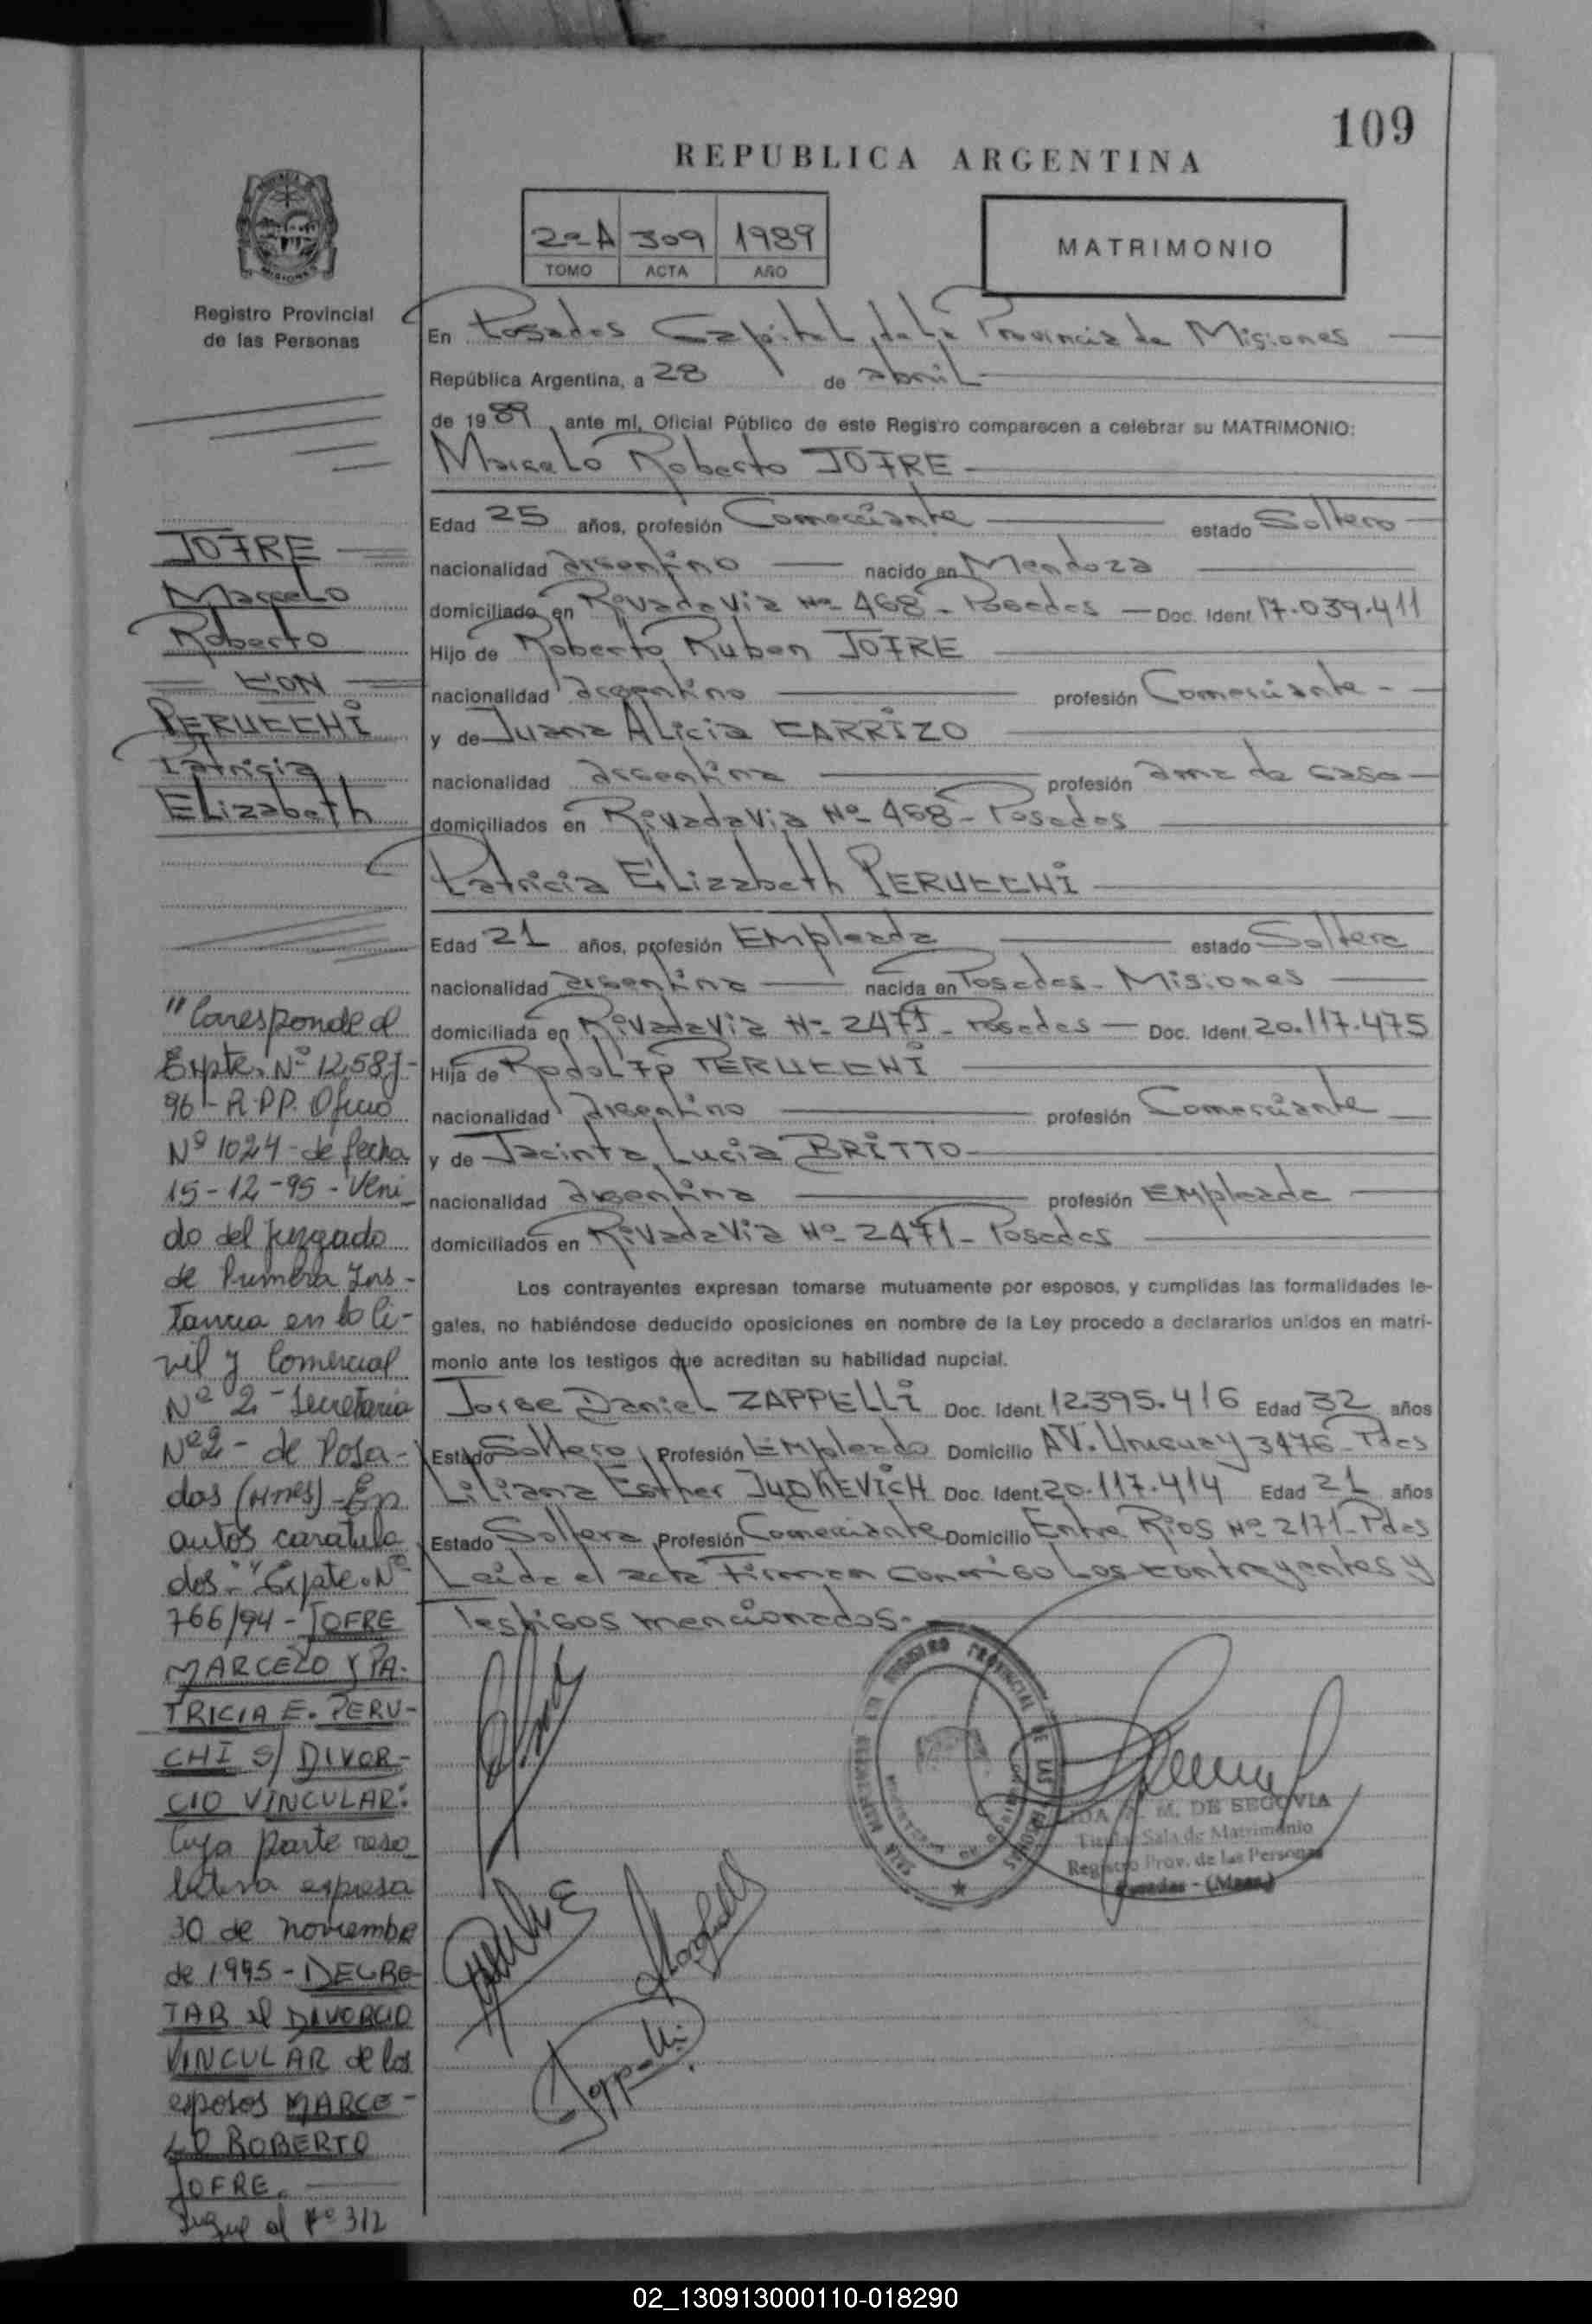 109
REPUBLICA ARGENTINA
2º A 309 1989
TOMO ACTA AÑO
MATRIMONIO
Registro Provincial
de las Personas
En Posadas Capital de la Provincia de Misiones
República Argentina, a 28 de abril
de 1989 ante mí, Oficial Público de este Registro comparecen a celebrar su MATRIMONIO:
Marcelo Roberto JOFRE
Edad 25 años, profesión Comerciante estado Soltero
nacionalidad argentino nacido en Mendoza
domiciliado en Rivadavia Nº 468 - Posadas - Doc. Ident 17.039.411
Hijo de Roberto Ruben JOFRE
nacionalidad argentino profesión Comerciante -
y de Juana Alicia CARRIZO
nacionalidad argentina profesión ama de casa
domiciliados en Rivadavia Nº 468 - Posadas
Patricia Elizabeth PERUCCHI
Edad 21 años, profesión Empleada estado Soltera
nacionalidad argentina nacida en Posadas - Misiones
domiciliada en Rivadavia Nº 2471 - Posadas - Doc. Ident. 20.117.475
Hija de Rodolfo PERUCCHI
nacionalidad argentino profesión Comerciante
y de Jacinta Lucia BRITTO
nacionalidad argentina profesión Empleada
domiciliados en Rivadavia Nº 2471 - Posadas
Los contrayentes expresan tomarse mutuamente por esposos, y cumplidas las formalidades le-
gales, no habiéndose deducido oposiciones en nombre de la Ley procedo a declararlos unidos en matri-
monio ante los testigos que acreditan su habilidad nupcial.
Jorge Daniel ZAPPELLI Doc. Ident. 12.395.416 Edad 32 años
Estado Soltero Profesión Empleado Domicilio AV. Uruguay 3476 - Pdas
Liliana Esther JUDKEVICH Doc. Ident. 20.117.414 Edad 21 años
Estado Soltera Profesión Comerciante Domicilio Entre Rios Nº 2171 - Pdas
Leida el acta Firman Conmigo Los contrayentes y
Testigos mencionados.
REGISTRO PROVINCIAL DE LAS PERSONAS
M. DE SEGOVIA
Titular Sala de Matrimonio
Registro Prov. de las Personas
Posadas - (Mnes.)
JOFRE
Marcelo
Roberto
CON
PERUCCHI
Patricia
Elizabeth
"Coresponde al
Expte. Nº 12.587-
96 - R.P.P. Oficio
Nº 1024 - de fecha
15-12-95 - Veni-
do del Juzgado
de Primera Ins-
tancia en lo Ci-
vil y Comercial
Nº 2 - Secretaria
Nº 2 - de Posa-
das (Mnes) - En
autos caratula
dos: "Expte. Nº
766/94 - JOFRE
MARCELO Y PA-
TRICIA E. PERU-
CHI S/ DIVOR-
CIO VINCULAR:
Cuya parte reso-
lutiva expresa
30 de noviembre
de 1995 - DECRE-
TAR el DIVORCIO
VINCULAR de los
esposos MARCE-
LO ROBERTO
JOFRE.
Sigue al Fº 312
02_130913000110-018290